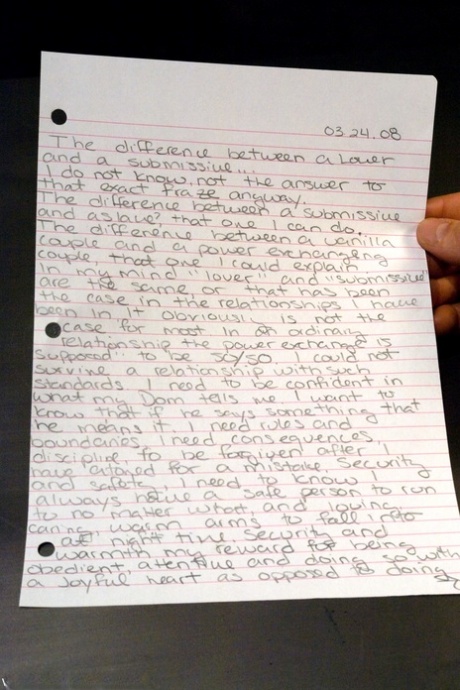 03.24.08
The difference between a Lover
and a submissive...
I do not know, not the answer to
that exact fraze anyway.
The difference between a submissive
and a slave? that one I can do.
The difference between a vanilla
couple and a power exchanging
couple, that one I could explain.
In my mind "lover" and "submissive"
are the same or that has been
the case in the relationships I have
been in. It obviousl. is not the
case for most in an ordinary
relationship the power exchange is
supposed" to be 50/50. I could not
survive a relationship with such
standards. I need to be confident in
what my Dom tells me. I want to
know that if he says something that
he means it. I need rules and
boundaries, I need consequences,
discipline, to be forgiven after I
have atoned for a mistake. Security
and safety, I need to know I
always have a safe person to run
to no matter what, and loving,
caring, warm arms to fall into
at night time. Security and
warmth my reward for being
obedient, attentive and doing so with
a joyful heart as opposed to doing